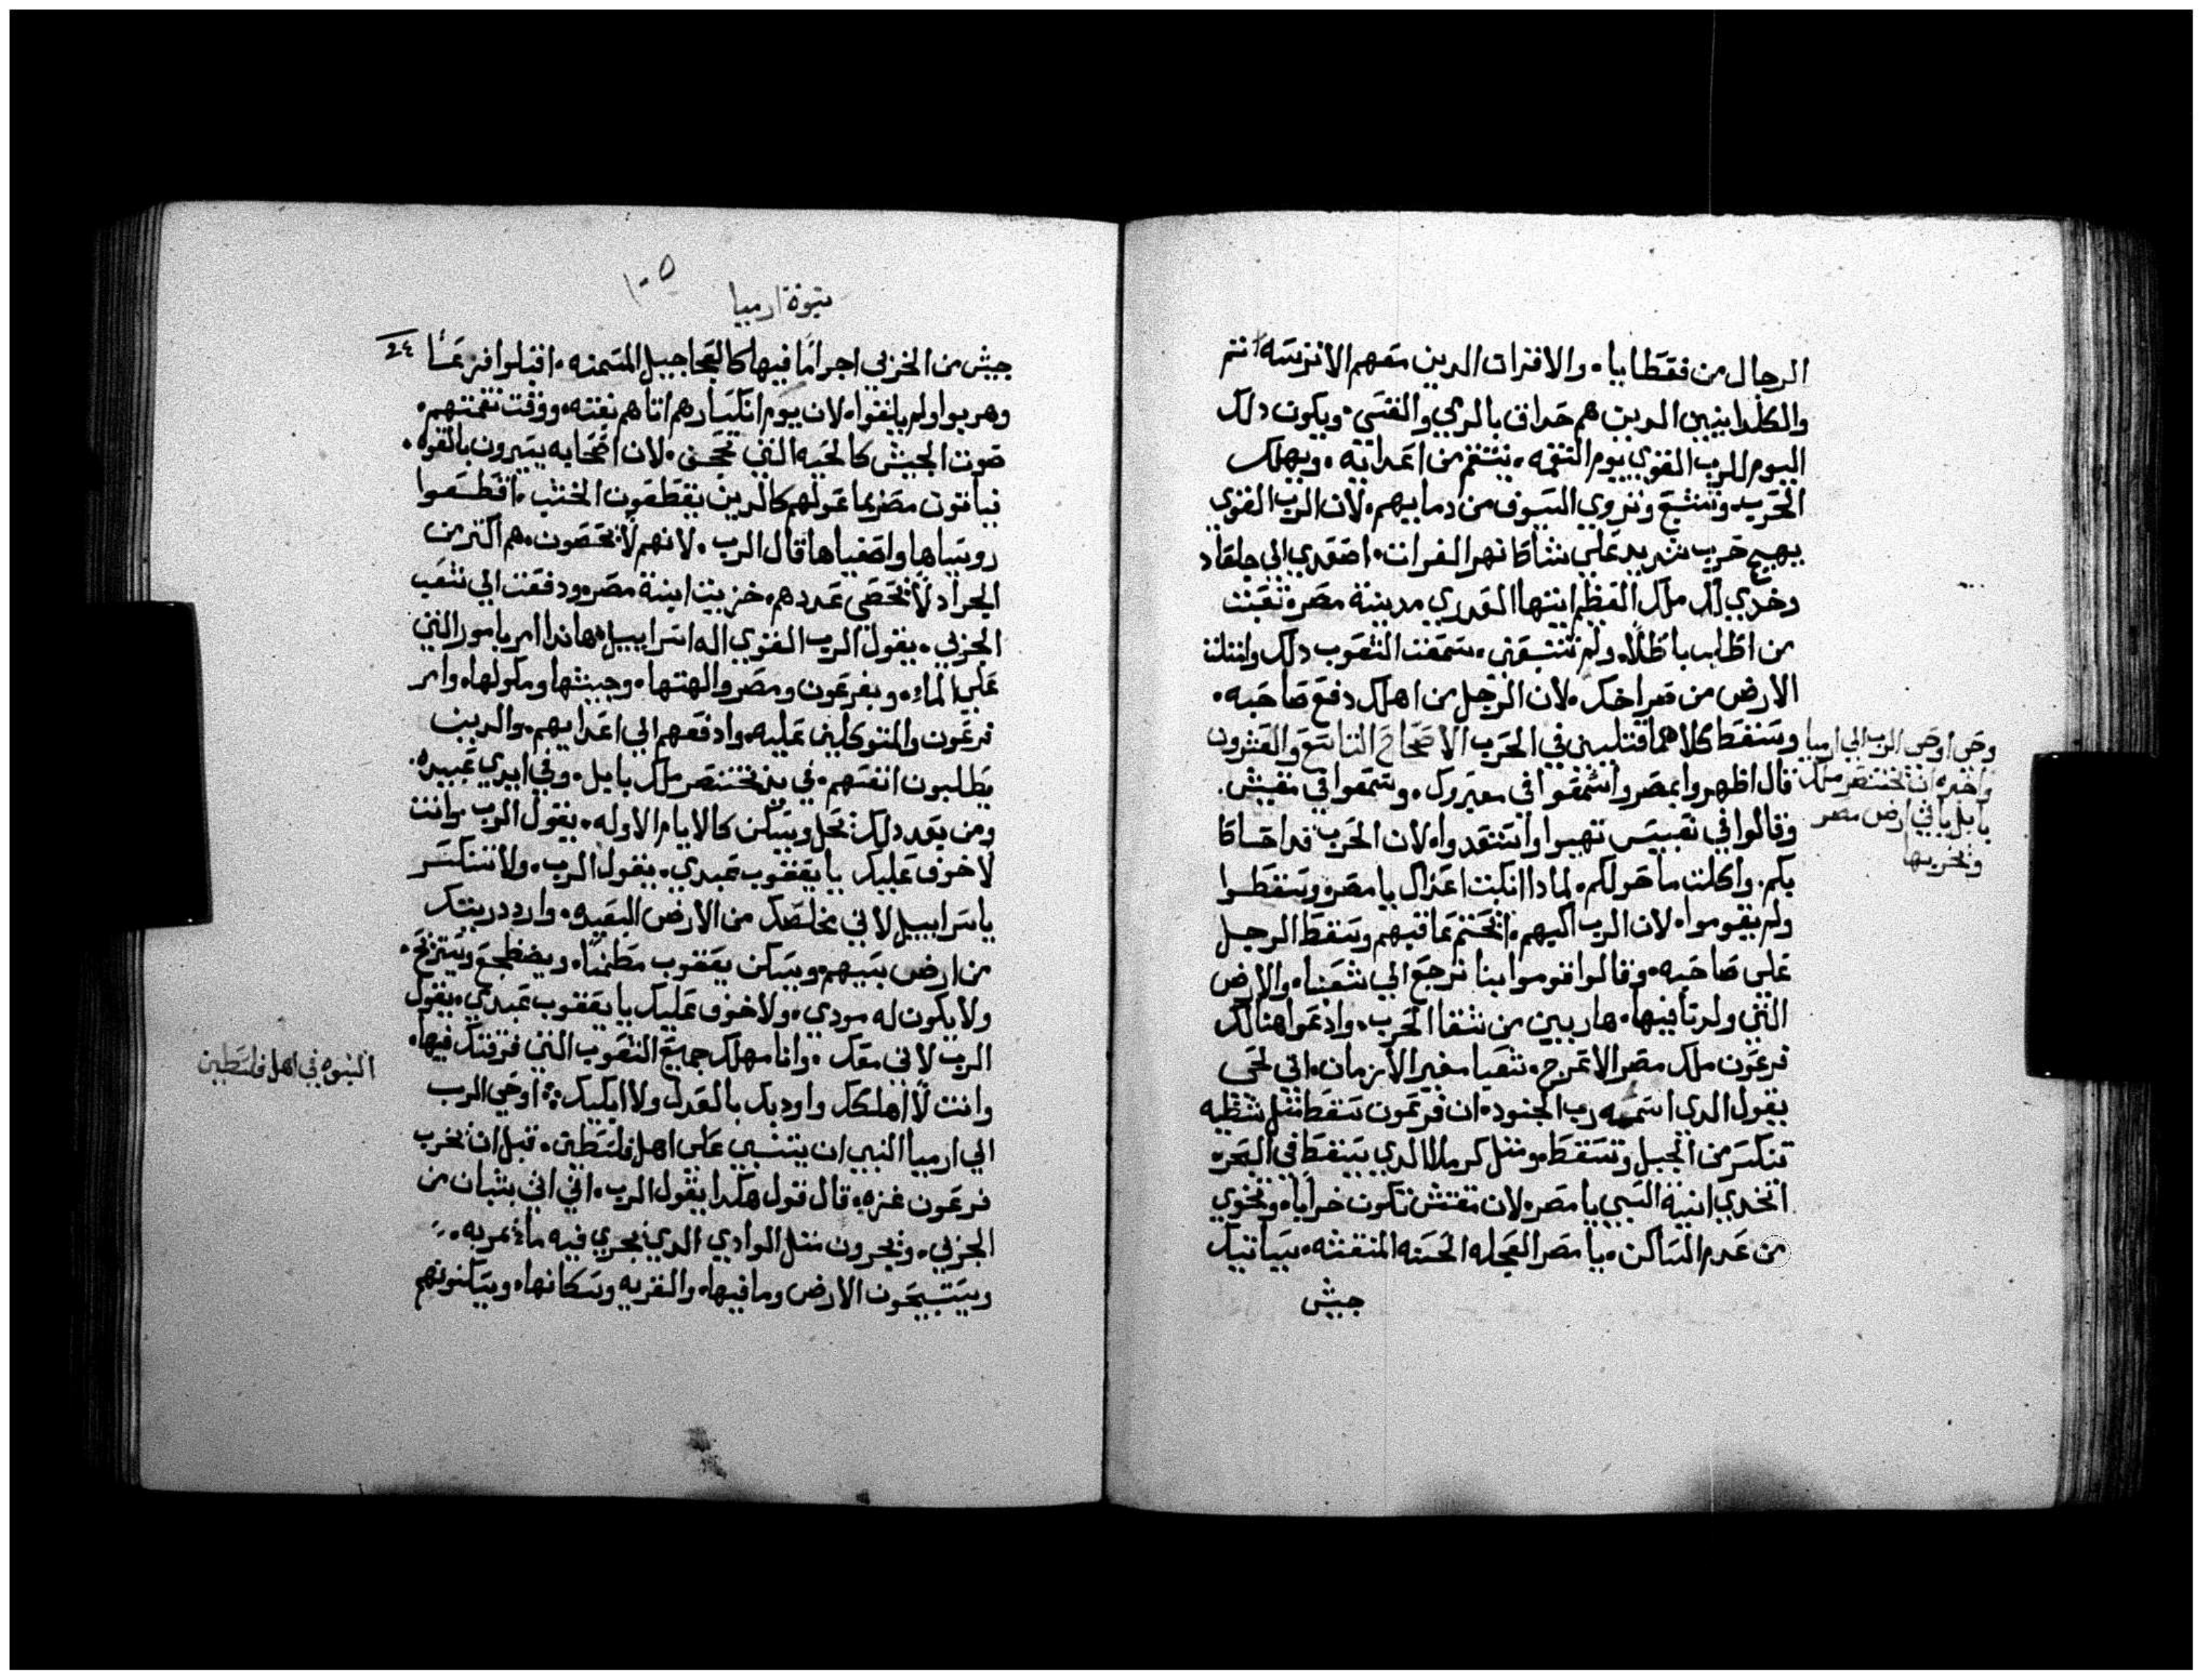 الرجال من فقطايا. والافرات الدين معهم الاترسه انتم
والكلدانيين الدين هم حداق بالرمي والقسي. ويكون دلك
اليوم للرب القوي يوم النقمه. ينتقم من اعدايه. ويهلك
الحرب وتشبع وتروي السيوف من دماييهم. لان الرب القوي
يهيج حرب شديد علي شاطا نهر الفرات. اصعدي الي جلعاد
وخدي لك ملك العظم ايتها العدري مدينة مصر. تعبت
من اطالب باطلا. ولم تنتفعي. سمعت الشعوب دلك وامتلت
الارض من صراخك. لان الرجل من اهلك دفع صاحبه.
وسقط كلاهما قتيلين في الحرب الاصحاح التاسع والعشرون
قال اظهروا بمصر واسمعوا في معبروك. وسمعوا في مفيش.
وقالوا في تقبيس تهيوا واستعدوا. لان الحرب قد احتاطا
بكم. واكلت ما حولكم. لمادا انكبت اعزال يا مصر. وسقطوا
ولم يقوموا. لان الرب اليهم. انختم عاقبهم وسقط الرجل
علي صاحبه. وقالوا قوموا بنا نرجع الي شعبنا. والارض
التي ولدنا فيها. هاربين من شقا الحرب. وادعوا هنالك
فرعون ملك مصر الاعرج. شعيا مغير الازمان. اني لحي
يقول الدي اسمه رب الجنود. ان فرعون سقط مثل شظيه
تنكسر من الجبل وتسقط. ومثل كرملا الدي يسقط في البحر.
اتخدي انية السبي يا مصر. لان مفتش تكون خرابا. وتخوي
من عدم الساكن. يا مصر العجله الحسنه المنقشه. سياتيك
جيش
وحي اوحي الرب الي ارميا
واخبره ان بختنصر ملك
بابل ياتي ارض مصر
ويخربها
١٠٥
نبوة ارميا
جيش من الحربي اجراما فيها كالعجاجيل المسمنه. اقبلوا فزعما ٢٤
وهربوا ولم يلتفوا. لان يوم انكسارهم اتاهم بغته. ووقت نقمتهم.
صوت الجيش كالحيه التي تحجى. لان اصحابه يسيرون بالقوه.
فياتون مصر بما عولهم كالدين يقطعون الخشب. اقطعوا
روسياها واصفياها قال الرب. لانهم لا يحصون. هم اكتر من
الجراد لا يحصي عددهم. خزيت ابنة مصر. ودفعت الي شعب
الجربي. يقول الرب القوي اله اسراييل. هاندا امر بامور التي
علي الماء. وبفرعون ومصر والهتها. وجيشها وملوكها. وامر
فرعون والمتوكلين عليه. وادفعهم الي اعداييهم. والدين
يطلبون انفسهم. في يد بختنصر ملك بابل. وفي ايدي عبيده.
ومن بعد دلك تحل ويسكن كالايام الاوله. يقول الرب. وانت
لا خوف عليك يا يعقوب عبدي. يقول الرب. ولا تنكسر
ياسراييل لاني مخلصك من الارض البعيده. وارد دريتك
من ارض سبيهم. ويسكن يعقوب مطمنا. ويضطجع ويستريح.
ولا يكون له مودي. ولا خوف عليك يا يعقوب عبدي. يقول
الرب لاني معك. وانا مهلك جميع الشعوب التي فرقتك فيها.
وانت لا اهلكك واوديك بالعدل ولا ابكيك. اوحي الرب
الي ارميا النبي ان يتنبي علي اهل فلسطين. قبل ان يخرب
فرعون غزه. قال قول هكدا يقول الرب. اني اتي بتبان من
الجربي. ويجرون مثل الوادي الدي يجري فيه ماء غمر به.
ويستبيحون الارض وما فيها. والقريه وسكانها. ويسكنونهم
النبوه في اهل فلسطين